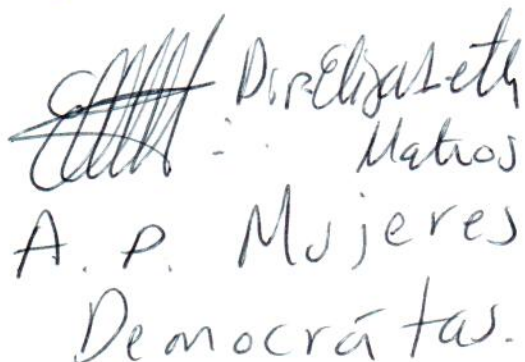 Dip Elizabeth
Mateos
A. P. Mujeres
Demócratas.